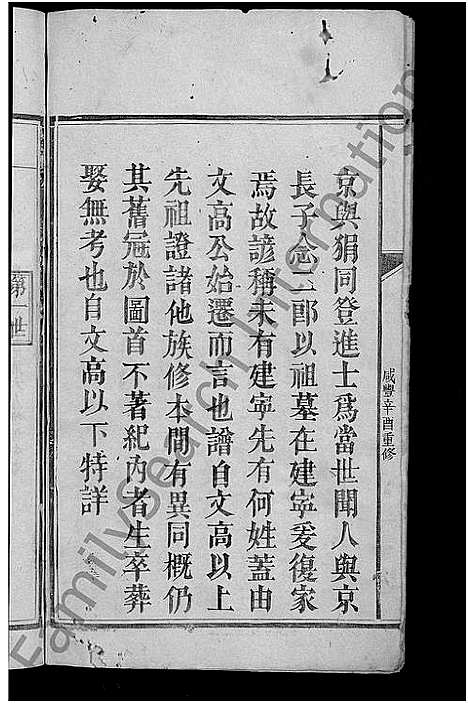 咸豐辛酉重修
京與狷同登進士爲當世聞人與京
長子念二郎以祖墓在建寧爰復家
焉故諺稱未有建寧先有何姓蓋由
文高公始遷而言也譜自文高以上
先祖證諸他族修本間有異同概仍
其舊冠於圖首不著紀內者生卒葬
娶無考也自文高以下特詳
第一世
FamilySearch International